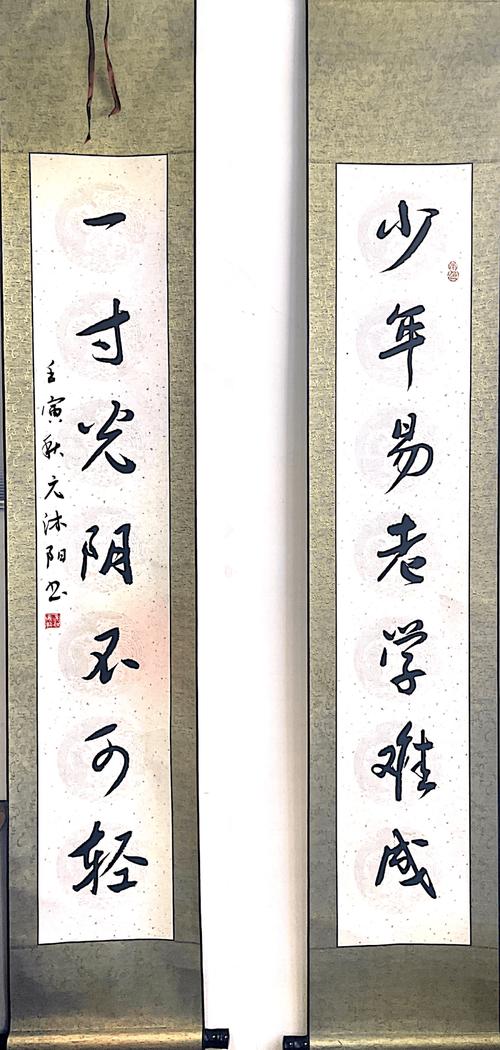 少年易老学难成
一寸光阴不可轻
壬寅秋元沐阳书